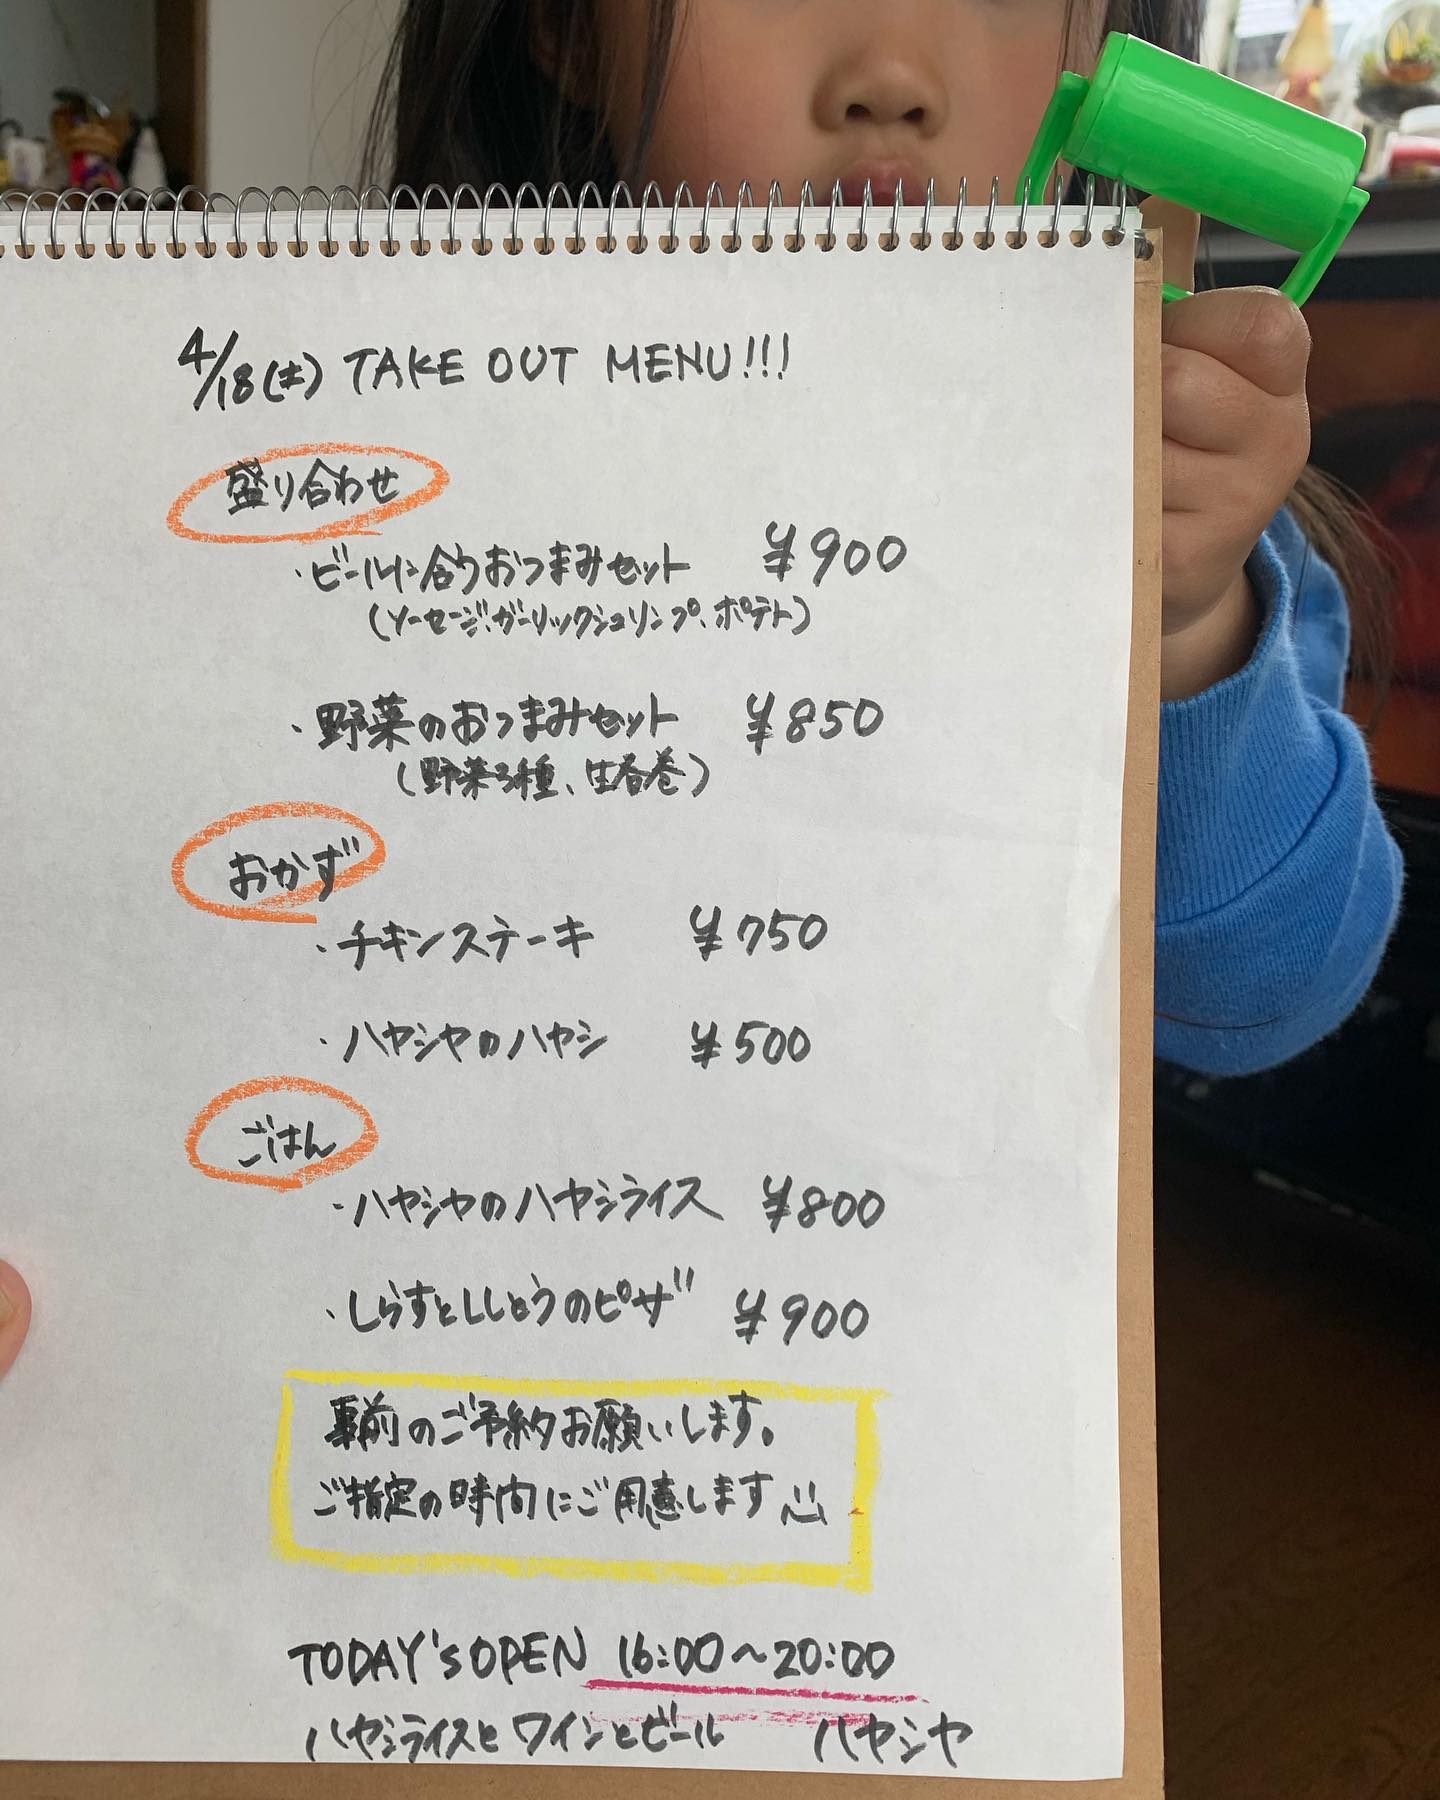 4/18(土) TAKE OUT MENU!!!
盛り合わせ
・ビールに合うおつまみセット ¥900
(ソーセージ、ガーリックシュリンプ、ポテト)
・野菜のおつまみセット ¥850
(野菜3種、生春巻)
おかず
・チキンステーキ ¥750
・ハヤシヤのハヤシ ¥500
ごはん
・ハヤシヤのハヤシライス ¥800
・しらすとししとうのピザ ¥900
事前のご予約お願いします。
ご指定の時間にご用意します
TODAY'S OPEN 16:00〜20:00
ハヤシライスとワインとビール ハヤシヤ